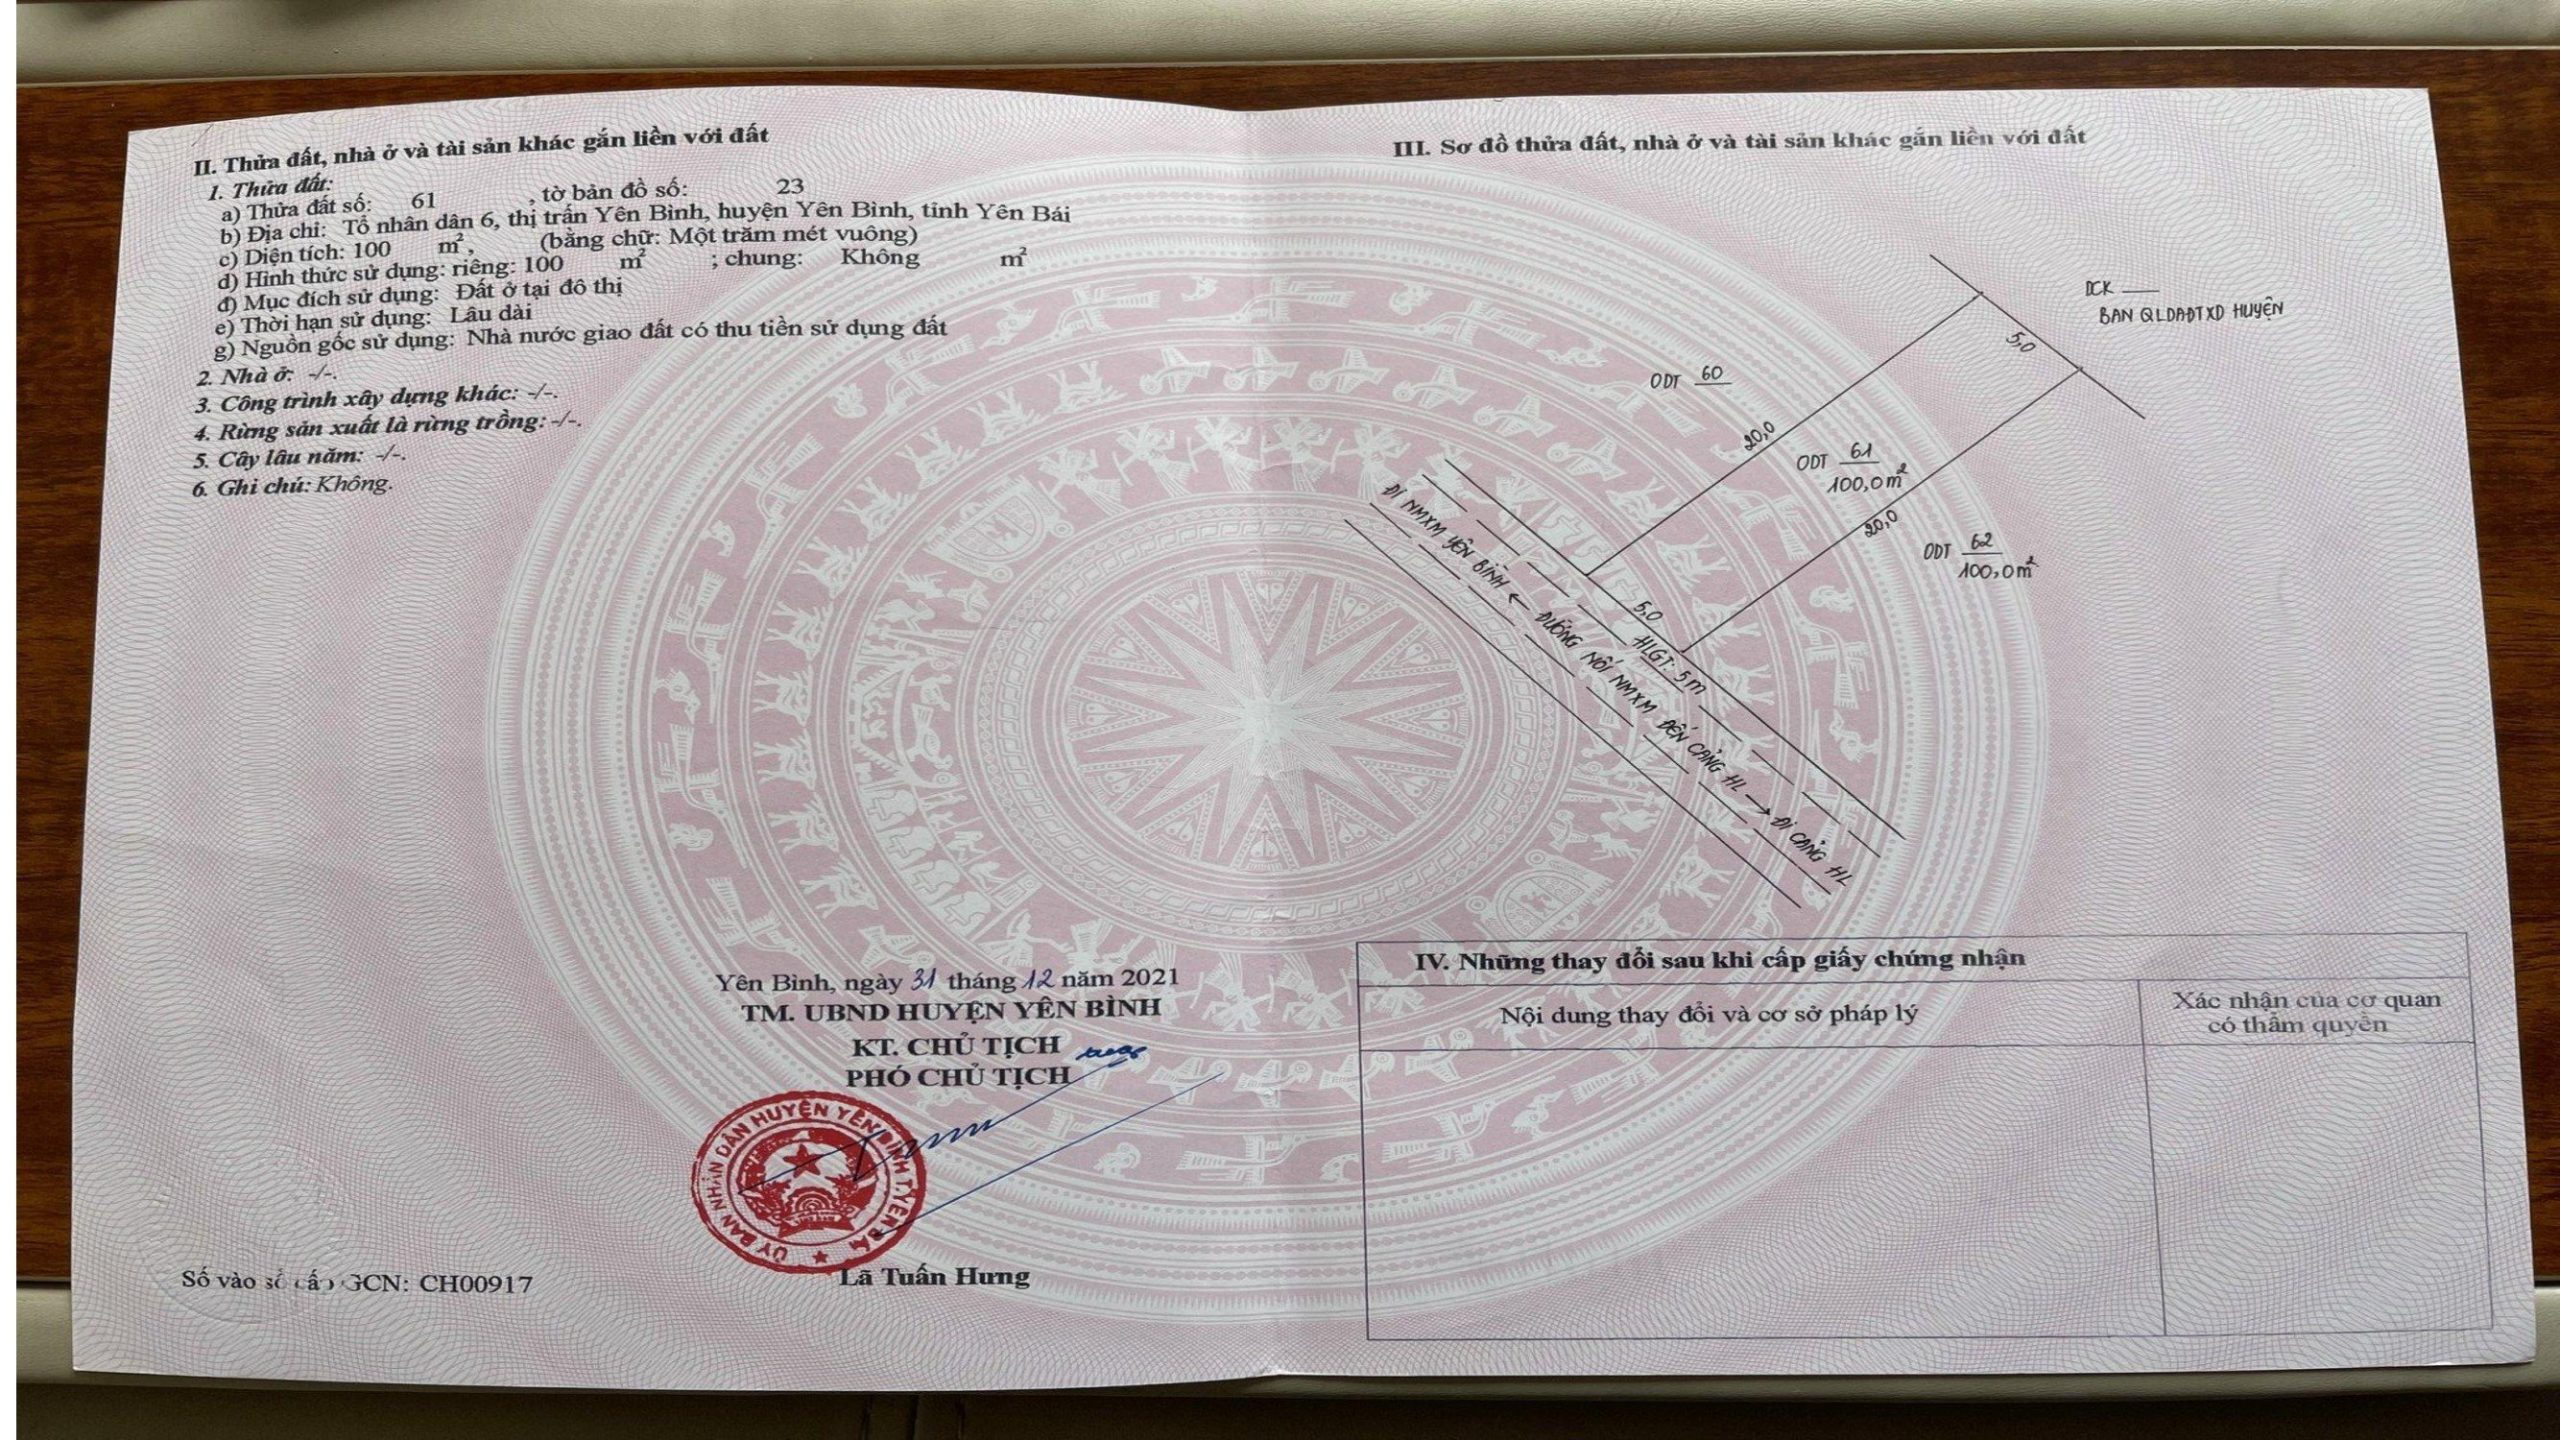 II. Thửa đất, nhà ở và tài sản khác gắn liền với đất
1. Thửa đất:
a) Thửa đất số: 61 , tờ bản đồ số: 23
b) Địa chỉ: Tổ nhân dân 6, thị trấn Yên Bình, huyện Yên Bình, tỉnh Yên Bái
c) Diện tích: 100 m², (bằng chữ: Một trăm mét vuông)
d) Hình thức sử dụng: riêng: 100 m² ; chung: Không m²
đ) Mục đích sử dụng: Đất ở tại đô thị
e) Thời hạn sử dụng: Lâu dài
g) Nguồn gốc sử dụng: Nhà nước giao đất có thu tiền sử dụng đất
2. Nhà ở: -/-.
3. Công trình xây dựng khác: -/-.
4. Rừng sản xuất là rừng trồng: -/-.
5. Cây lâu năm: -/-.
6. Ghi chú: Không.
Yên Bình, ngày 31 tháng 12 năm 2021
TM. UBND HUYỆN YÊN BÌNH
KT. CHỦ TỊCH
PHÓ CHỦ TỊCH
ỦY BAN NHÂN DÂN HUYỆN YÊN BÌNH T.YÊN BÁI
Lã Tuấn Hưng
Số vào sổ cấp GCN: CH00917
III. Sơ đồ thửa đất, nhà ở và tài sản khác gắn liền với đất
DCK
BAN QLDAĐTXD HUYỆN
5,0
ODT 60
20,0
ODT 61
100,0 m²
20,0
ODT 62
100,0 m²
5,0
HLGT: 5m
ĐI NMXM YÊN BÌNH ← ĐƯỜNG NỐI NMXM ĐẾN CẢNG HL → ĐI CẢNG HL
IV. Những thay đổi sau khi cấp giấy chứng nhận
Nội dung thay đổi và cơ sở pháp lý
Xác nhận của cơ quan
có thẩm quyền